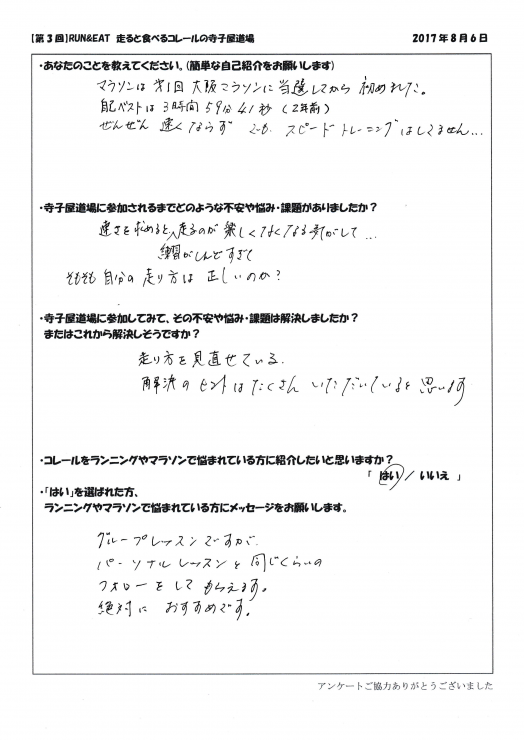 【第3回】RUN&EAT 走ると食べるコレールの寺子屋道場 2017年8月6日
・あなたのことを教えてください。(簡単な自己紹介をお願いします)
マラソンは第1回大阪マラソンに当選してから初めました。
自己ベストは3時間59分41秒(2年前)
ぜんぜん速くならず でも、スピードトレーニングはしてません…
・寺子屋道場に参加されるまでどのような不安や悩み・課題がありましたか?
速さを求めると、走るのが楽しくなくなる気がして…
練習がしんどすぎて
そもそも自分の走り方は正しいのか?
・寺子屋道場に参加してみて、その不安や悩み・課題は解決しましたか?
またはこれから解決しそうですか?
走り方を見直せている。
解決のヒントはたくさんいただいていると思います
・コレールをランニングやマラソンで悩まれている方に紹介したいと思いますか?
「 はい / いいえ 」
・「はい」を選ばれた方、
ランニングやマラソンで悩まれている方にメッセージをお願いします。
グループレッスンですが、
パーソナルレッスンと同じくらいの
フォローをしてもらえます。
絶対におすすめです。
アンケートご協力ありがとうございました